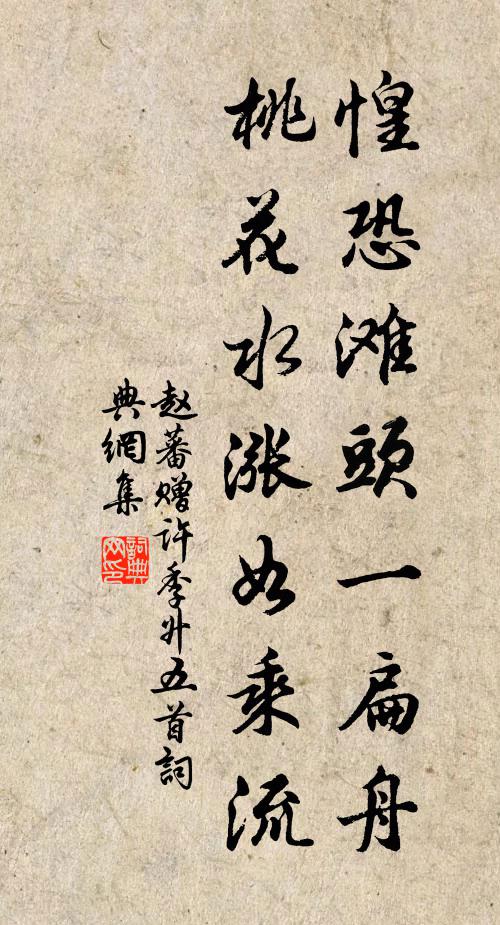 惶恐滩頭一扁舟
桃花水漲如乘流
赵蕃赠许季升五首詞
典網集
詞典
网印